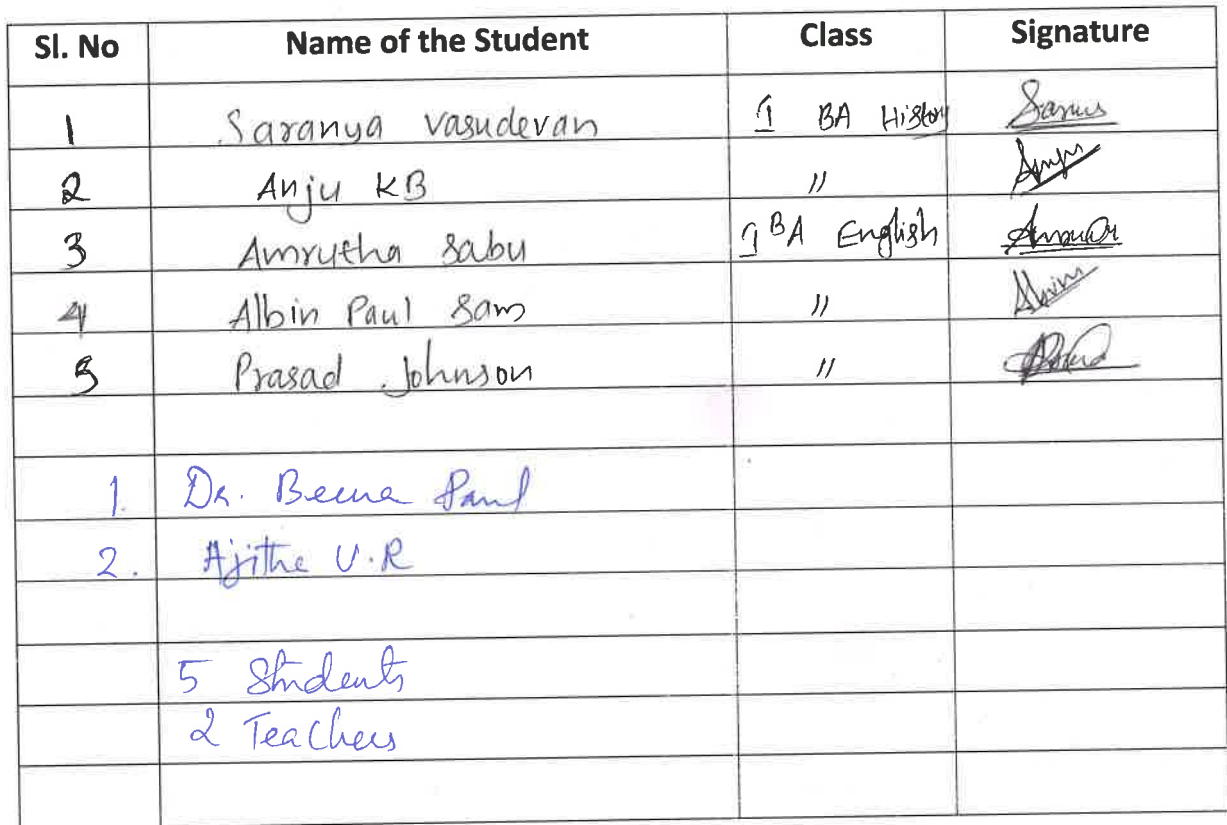 Sl. No Name of the Student Class Signature
1 Saranya Vasudevan I BA History
2 Anju KB "
3 Amrutha Sabu I BA English
4 Albin Paul Sam "
5 Prasad Johnson "
1. Dr. Beena Paul
2. Ajitha U.R
5 Students
2 Teachers